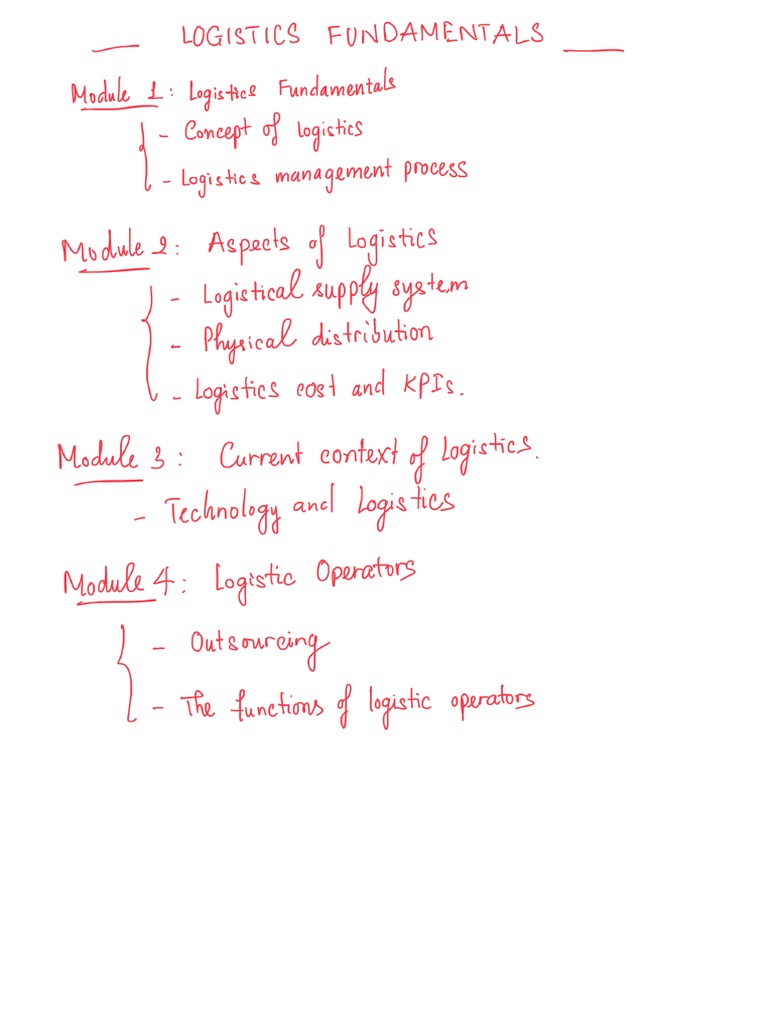 LOGISTICS FUNDAMENTALS
Module 1: Logistics Fundamentals
- Concept of logistics
- Logistics management process
Module 2: Aspects of Logistics
- Logistical supply system
- Physical distribution
- Logistics cost and KPIs.
Module 3: Current context of Logistics.
- Technology and Logistics
Module 4: Logistic Operators
- Outsourcing
- The functions of logistic operators